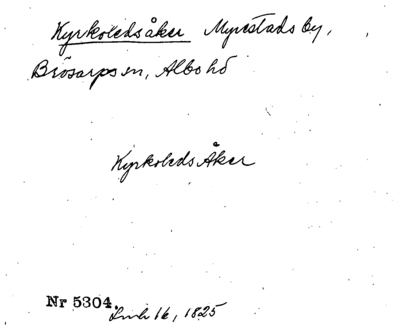 Kyrkoledsåker Myrestads by,
Brösarps sn, Albo hd
Kyrkoleds Åker
Nr 5304.
16, 1825